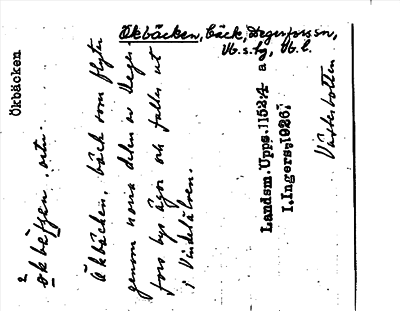 Ökbäcken
Ökbäcken, bäck, Degerforssn,
Vb. s. Lg, Vb. l.
Ökbäcken, bäck som flyter
genom norra delen av Deger-
fors bys ägor och faller ut
i Vindelälven.
Landsm. Upps. 1152:4 a
I. Ingers, 1926;
Västerbotten